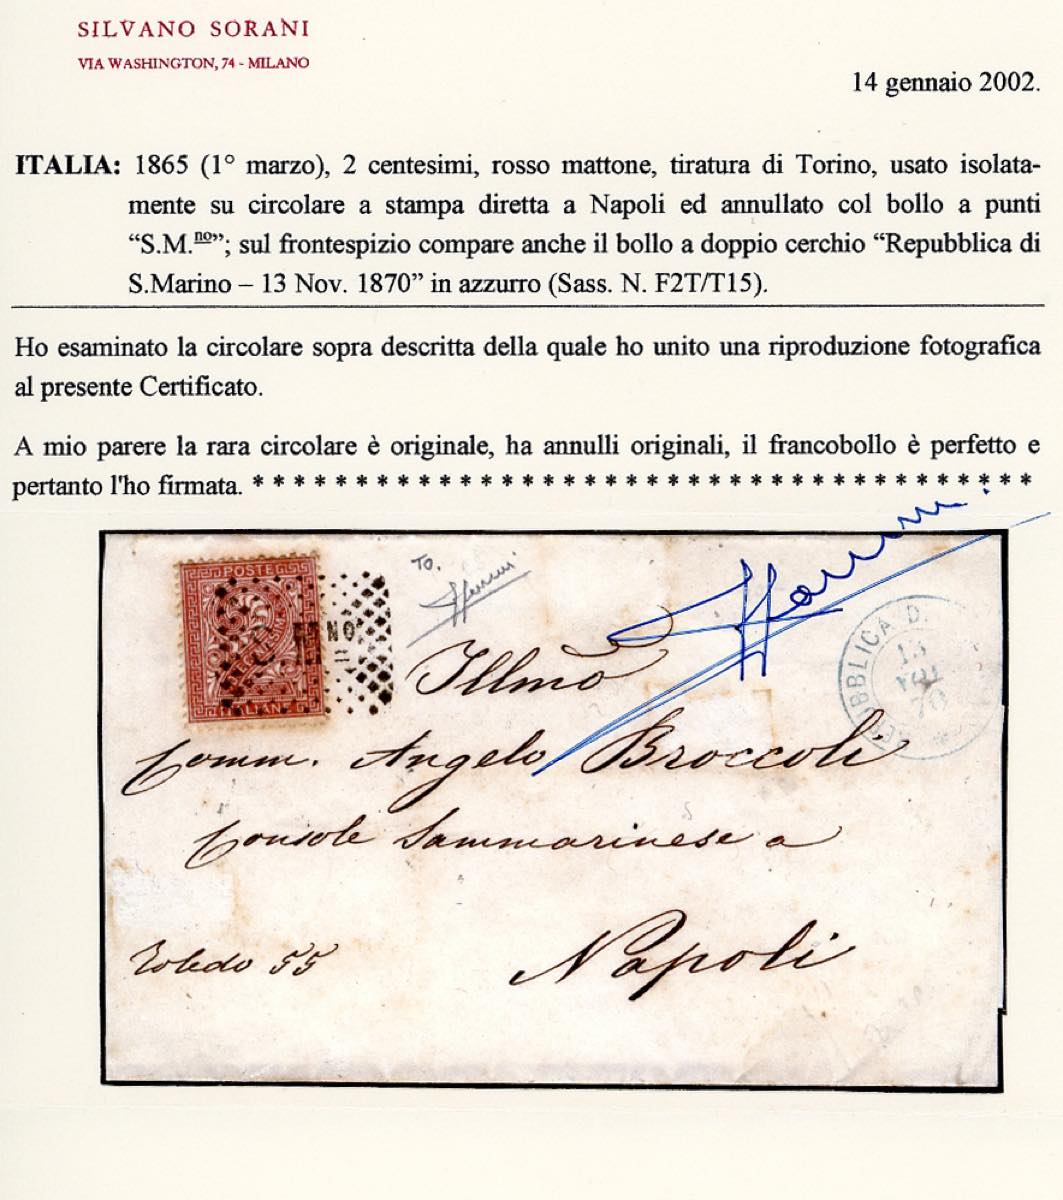 SILVANO SORANI
VIA WASHINGTON, 74 - MILANO
14 gennaio 2002.
ITALIA: 1865 (1° marzo), 2 centesimi, rosso mattone, tiratura di Torino, usato isolata-
mente su circolare a stampa diretta a Napoli ed annullato col bollo a punti
“S.M.no”; sul frontespizio compare anche il bollo a doppio cerchio “Repubblica di
S.Marino – 13 Nov. 1870” in azzurro (Sass. N. F2T/T15).
Ho esaminato la circolare sopra descritta della quale ho unito una riproduzione fotografica
al presente Certificato.
A mio parere la rara circolare è originale, ha annulli originali, il francobollo è perfetto e
pertanto l'ho firmata. * * * * * * * * * * * * * * * * * * * * * * * * * * * * * * * * * * * * * *
POSTE
2
ITALIANO
TO.
BBLICA D.
13
70
Illmo
Comm. Angelo Broccoli
Console Sammarinese a
Napoli
Toledo 55